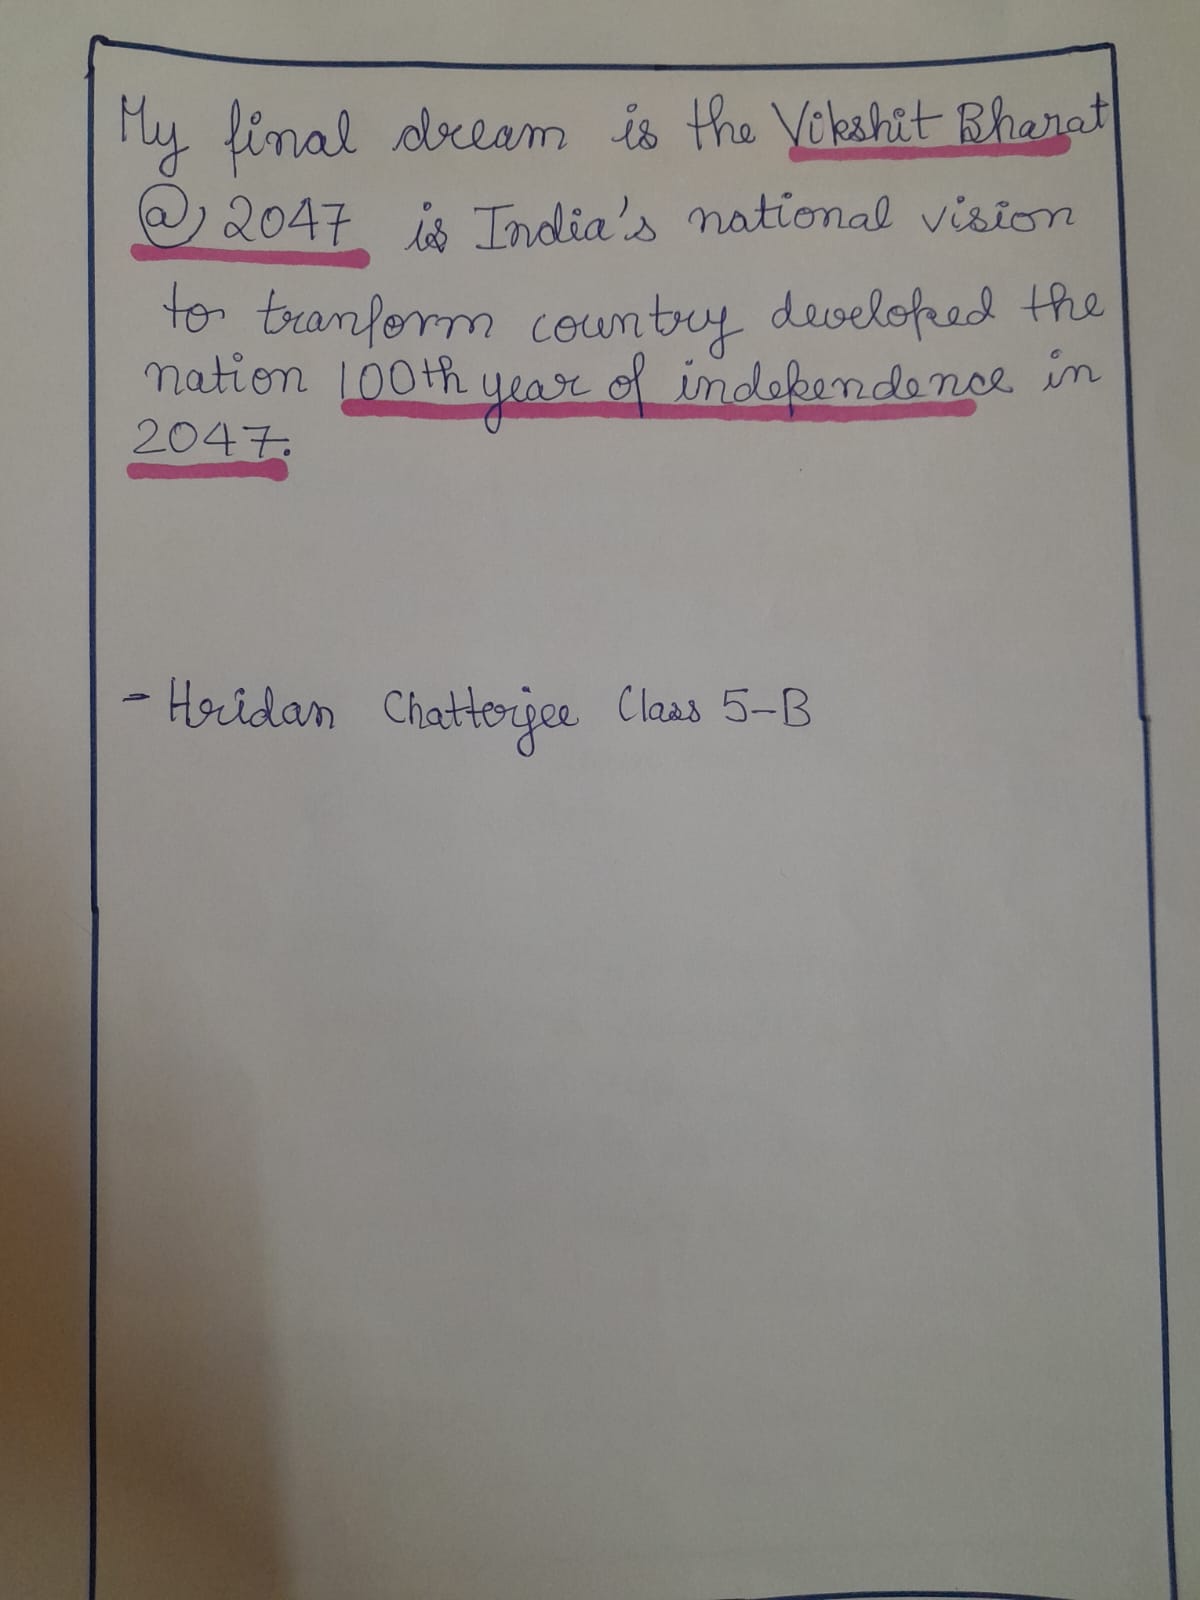 My final dream is the Vikshit Bharat
@ 2047 is India's national vision
to tranform country developed the
nation 100th year of independence in
2047.
- Hridan Chatterjee Class 5-B